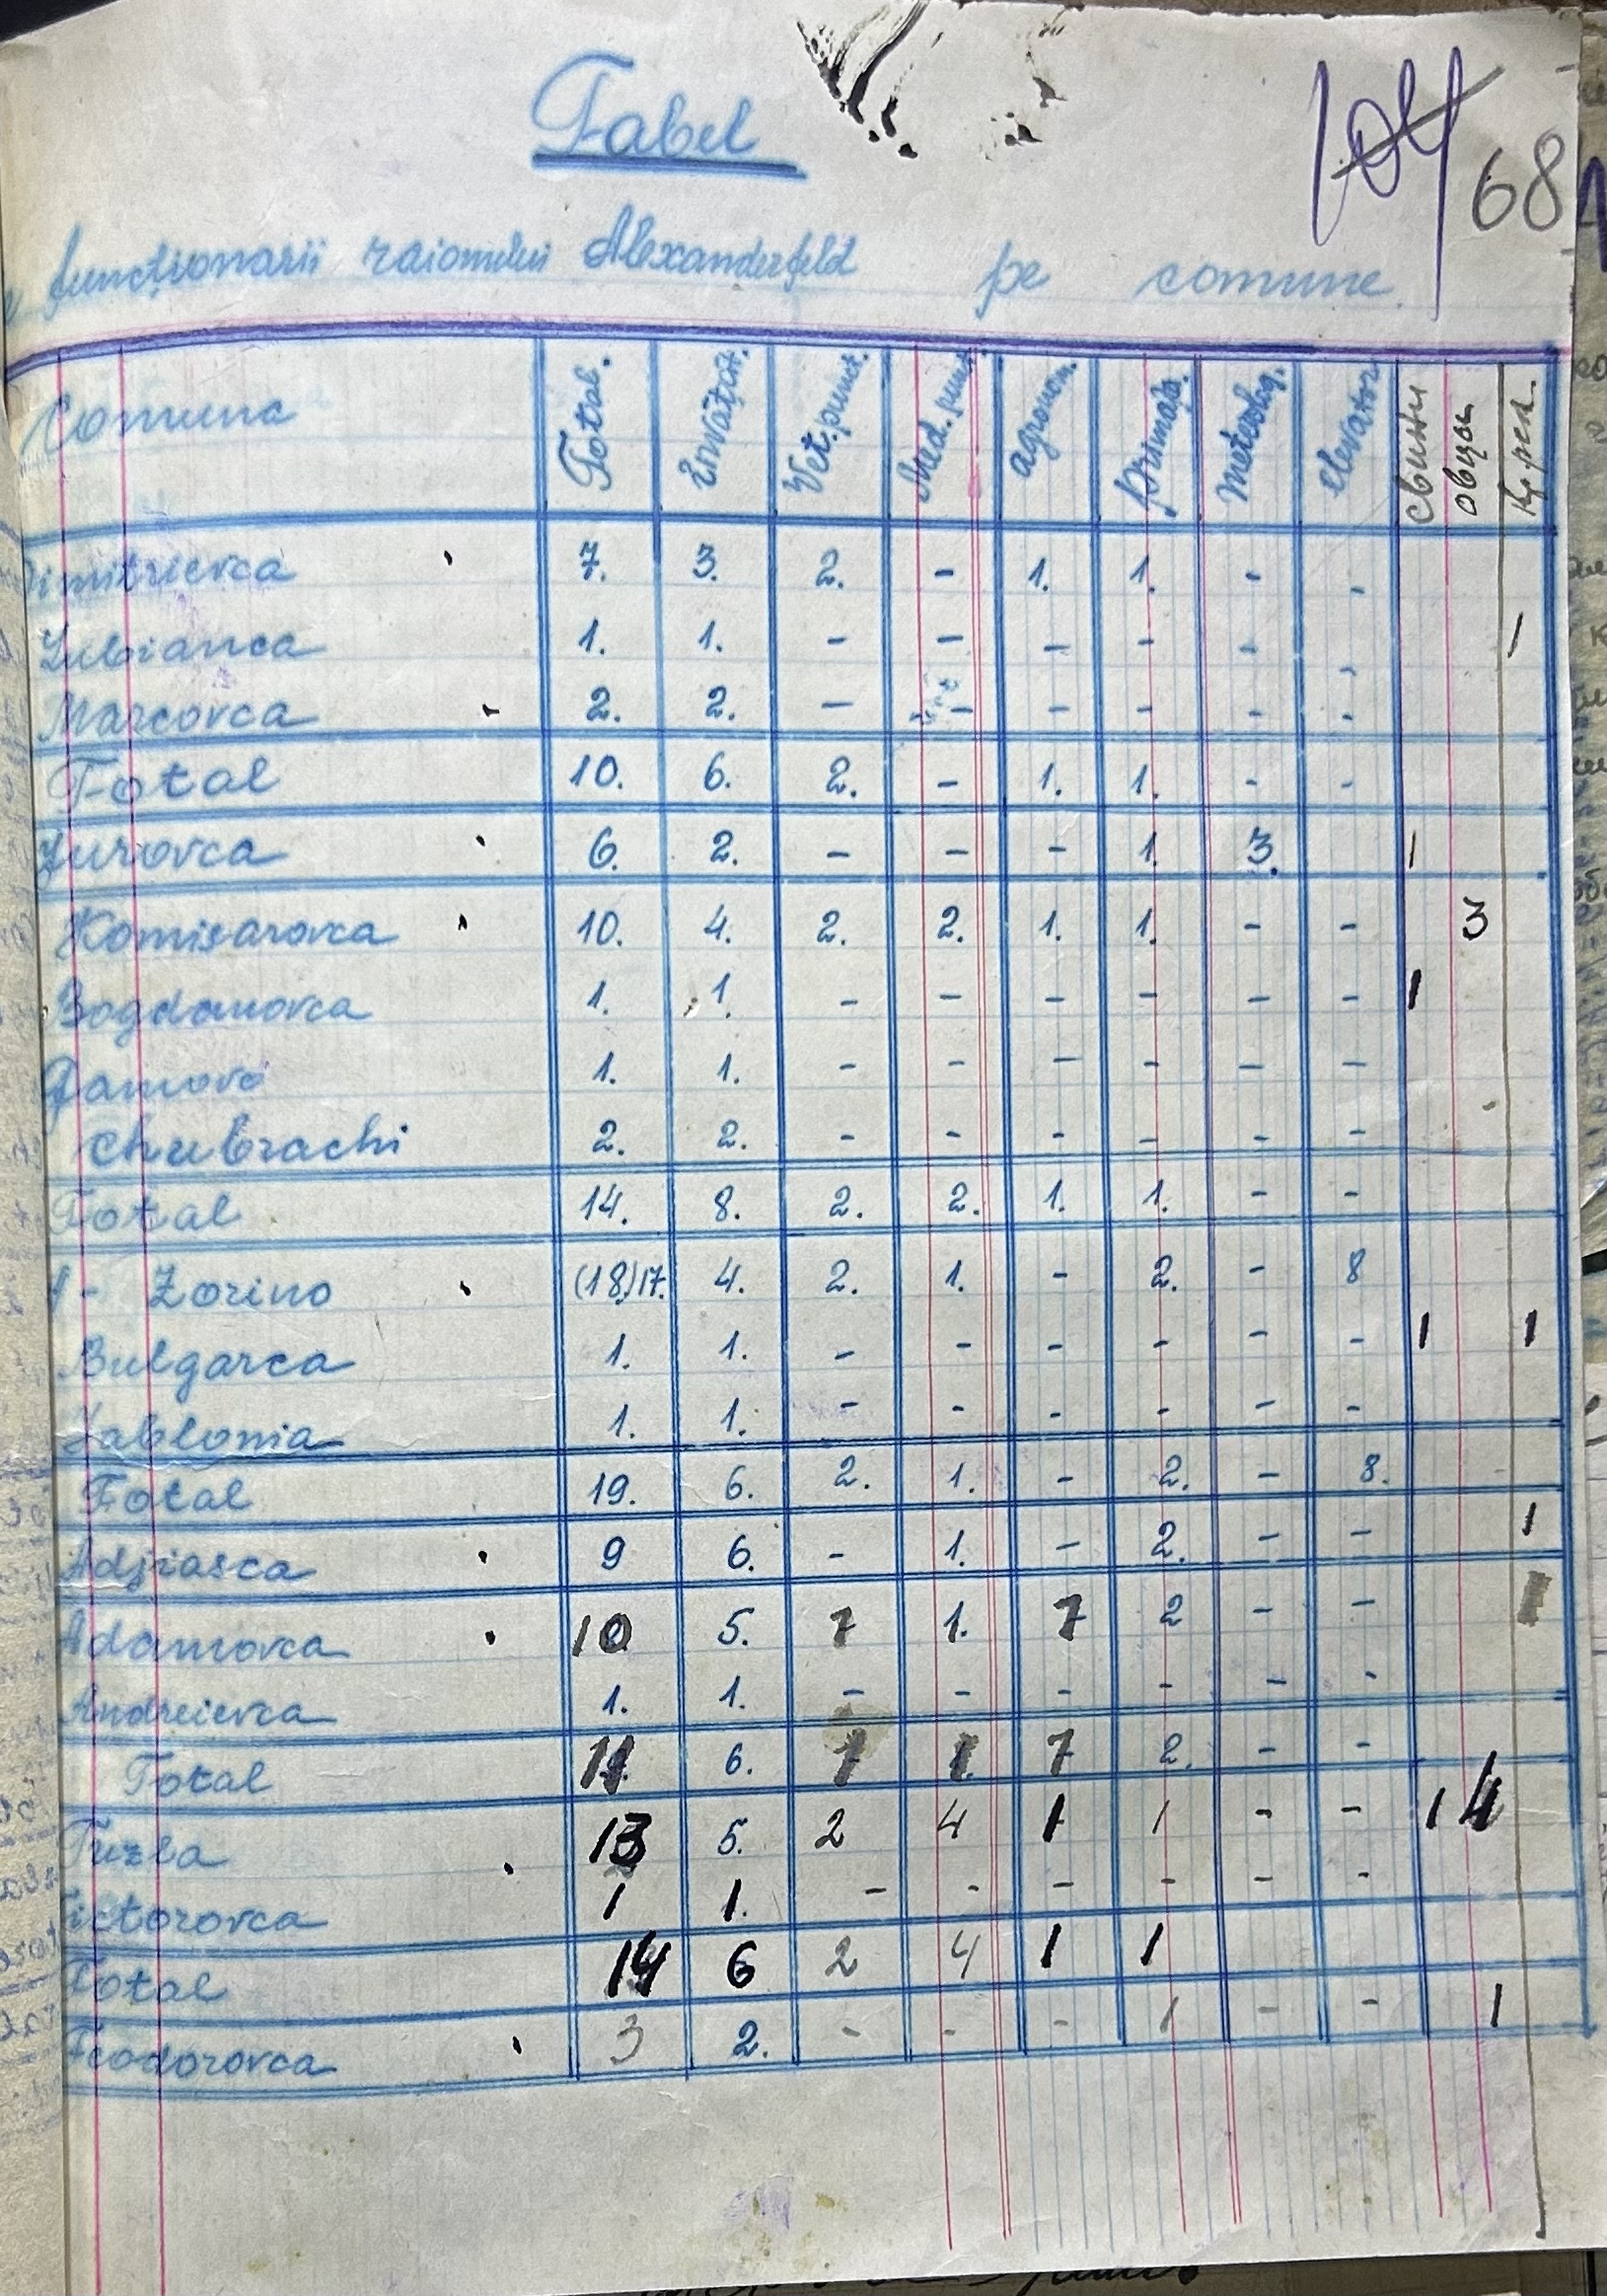 Tabel
104 68
funcționarii raionului Alexanderfeld pe comune.
Comuna Total. Învățăt. Vet. punct. Med. punct. agronom. primăr. meteolog. elevator свиньи овцы кр рог.
Dimitrievca 7. 3. 2. - 1. 1. - -
Lubianca 1. 1. - - - - - - 1
Marcovca 2. 2. - - - - - -
Total 10. 6. 2. - 1. 1. - -
Jurovca 6. 2. - - - 1. 3. 1
Komisarovca 10. 4. 2. 2. 1. 1. - - 3
Bogdanovca 1. 1. - - - - - - 1
1. 1. - - - - - -
Chubrachi 2. 2. - - - - - -
Total 14. 8. 2. 2. 1. 1. - -
Zorino (18)17. 4. 2. 1. - 2. - 8
Bulgarca 1. 1. - - - - - - 1 1
Iablonia 1. 1. - - - - - -
Total 19. 6. 2. 1. - 2. - 8.
Adjiasca 9 6. - 1. - 2. - - 1
Adamovca 10 5. 1 1. 1 2 - -
Andreievca 1. 1. - - - - - -
Total 11 6. 1 1 1 2. - -
Tuzla 13 5. 2 4 1 1 - - 1 4
Victorovca 1 1. - - - - - -
Total 14 6 2 4 1 1
Feodorovca 3 2. - - - 1 - - 1